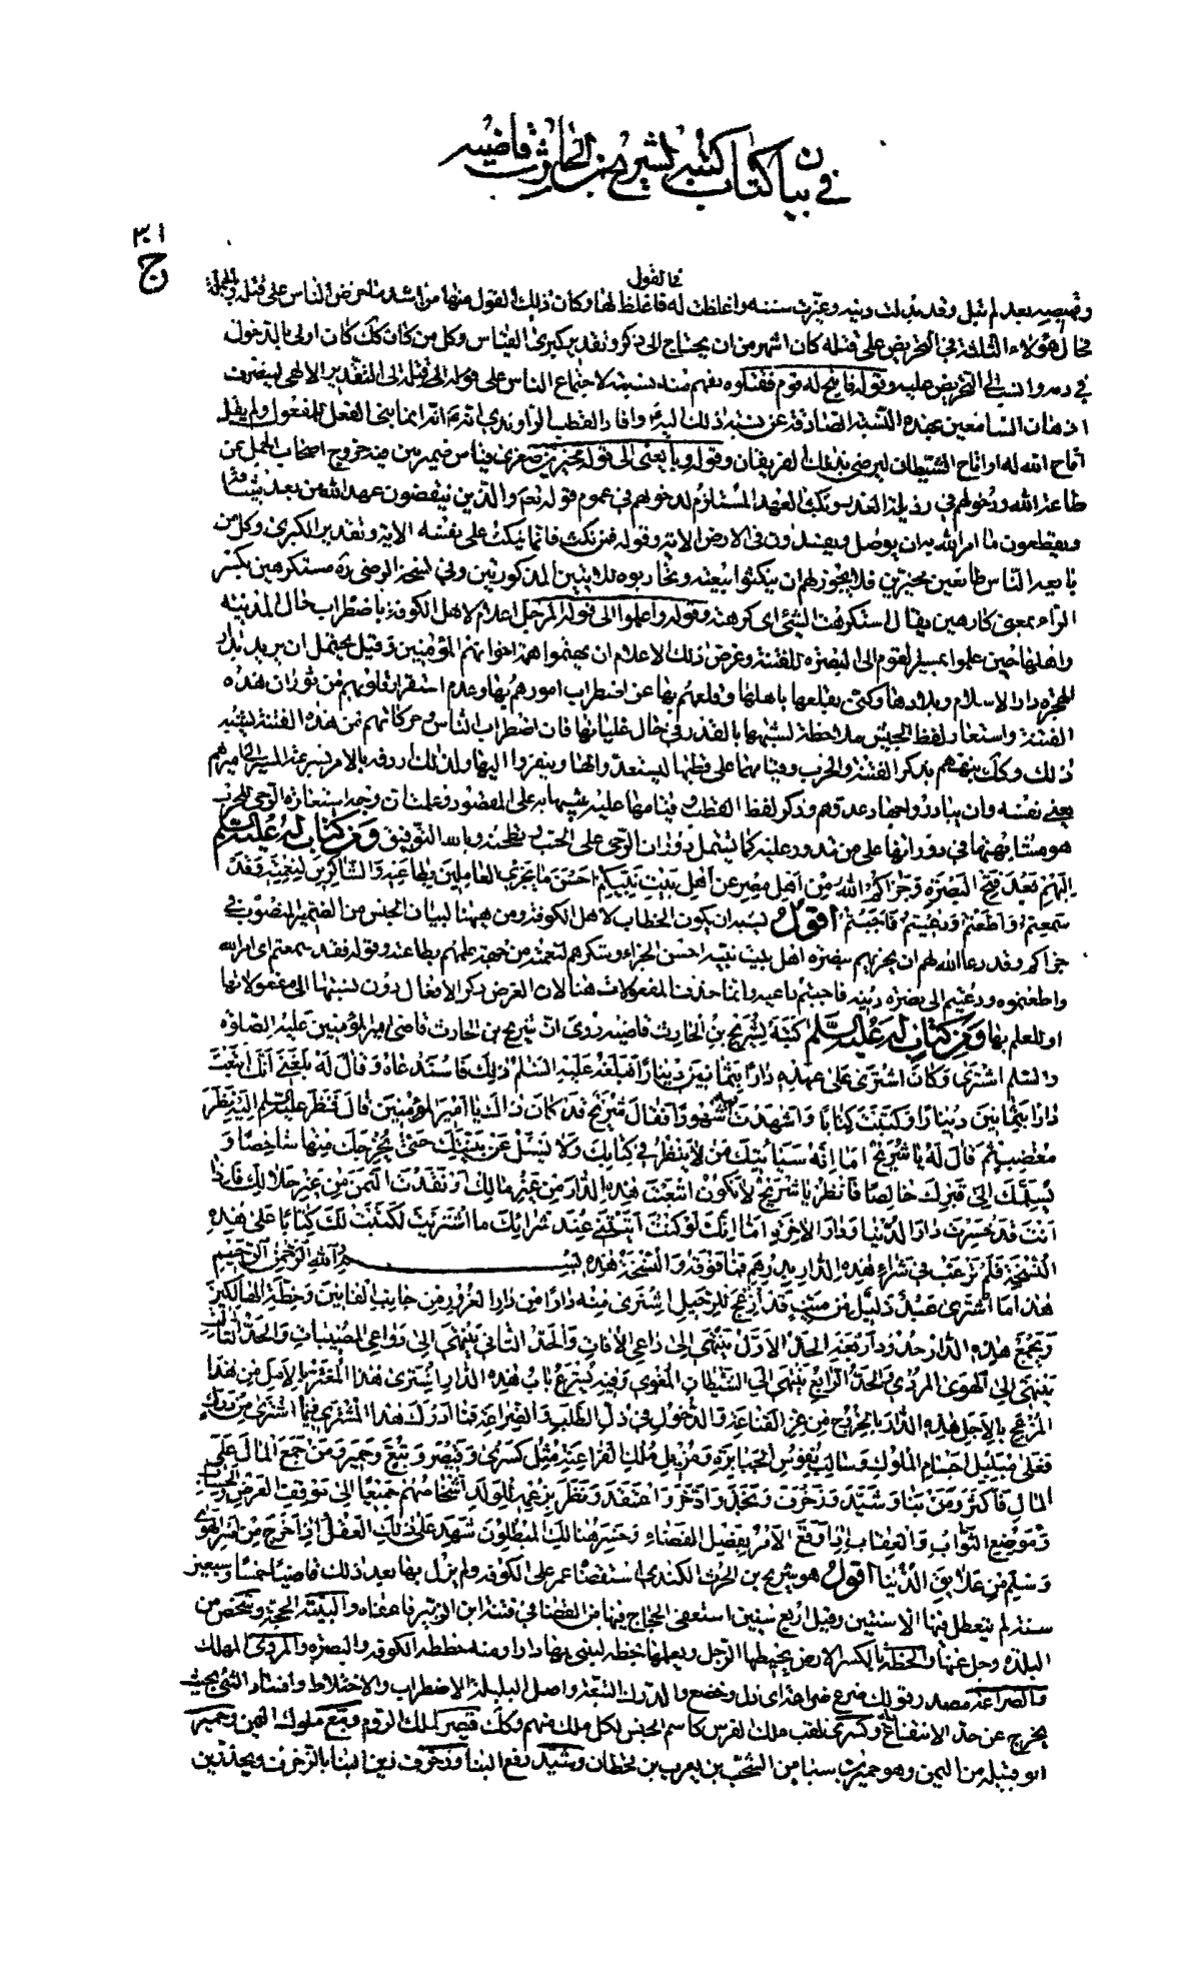 في بيان كتاب كتبه لشريح بن الحارث قاضيه
٣٠١
ج
في القول
وقميصه بعد لم تبل وقد بدلت دينه وغيرت سنته واغلظت له فاغلظ لها وكان ذلك القول منها من اشد ما حرض الناس على قتله وبالجملة
فحال هؤلاء الثلثة في التحريض على قتله كان اشهر من ان يحتاج الى ذكر وتقدير كبرى القياس وكل من كان كك كان اولى بالدخول
في دمه وانسب الى التحريض عليه وقوله فاتيح له قوم فقتلوه يفهم منه نسبة لاجتماع الناس على قتله الى التقدير الالهي لينصرف
اذهان السامعين بهذه النسبة الصادقة عن نسبة ذلك اليه وافاد القطب الراوندي انه انما بنى الفعل للمفعول ولم يقل
اتاح الله له او اتاح الشيطان ليرضى بذلك الفريقان وقوله وبايعني الى قوله مخيرين صغرى قياس ضمير بين فيه خروج اصحاب الجمل عن
طاعة الله ودخولهم في رذيلة الغدر ونكث العهد المستلزم لدخولهم في عموم قوله تعم والذين ينقضون عهد الله من بعد ميثاقه
ويقطعون ما امر الله به ان يوصل ويفسدون في الارض الاية وقوله فمن نكث فانما ينكث على نفسه الاية وتقدير الكبرى وكل من
بايعه الناس طائعين مخيرين فلا يجوز لهم ان ينكثوا بيعته ويحاربوه للايتين المذكورتين وفي نسخة الرضي ره مستكرهين بكسر
الراء بمعنى كارهين يقال استكرهت الشيء اى كرهته وقوله واعلموا الى قوله المرجل اعلام لاهل الكوفة باضطراب حال المدينة
واهلها حين علموا بمسير القوم الى البصرة للفتنة وغرض ذلك الاعلام ان يهتموا هم اخوانهم المؤمنين وقيل يحتمل ان يريد بدار
الهجرة دار الاسلام وبلادها وكنى بقلعها باهلها وقلعهم بها عن اضطراب امورهم بها وعدم استقرار قلوبهم من ثوران هذه
الفتنة واستعار لفظ الجيش ملاحظة لشبهها بالقدر في حال غليانها فان اضطراب الناس وحركاتهم من هذه الفتنة يشبه
ذلك وكك ينبههم بذكر الفتنة والحرب وقيامها على قطبها ليستعدوا لها وينفروا اليها ولذلك اردفه بالامر بسرعة المسير الى اميرهم
يعني نفسه وان يبادروا جهاد عدوهم وذكر لفظ القطب وقيامها عليه تشبيها به على المقصود
هو مشابهتها في دورانها على من تدور عليه كما يشتمل دوران الرحى على الحب وتطحنه وبالله التوفيق ومن كتاب له عليه السلم
اليهم بعد فتح البصرة وجزاكم الله من اهل مصر عن اهل بيت نبيكم احسن ما يجزى العاملين بطاعته والشاكرين لنعمته فقد
سمعتم واطعتم ودعيتم فاجبتم اقول يشبه ان يكون الخطاب لاهل الكوفة ومن ههنا لبيان الجنس من الضمير المنصوب في
جزاكم وقد دعا الله لهم ان يجزيهم بنصرة اهل بيت نبيه احسن الجزاء وشكرهم لنعمته من جهة علمهم بطاعته وقوله فقد سمعتم اى امر الله
واطعتموه ودعيتم الى نصرة دينه فاجبتم داعيه وانما حذف المفعولات هنا لان الغرض ذكر الافعال دون نسبتها الى مفعولاتها
او للعلم بها ومن كتاب له عليه السلم كتبه لشريح بن الحارث قاضيه روى ان شريح بن الحارث قاضى امير المؤمنين عليه الصلوة
والسلم اشترى على عهده دارا بثمانين دينارا فبلغه عليه السلم ذلك فاستدعاه وقال له بلغني انك ابتعت
دارا بثمانين دينارا وكتبت كتابا واشهدت شهودا فقال شريح قد كان ذلك يا امير المؤمنين قال فنظر عليه السلم اليه نظر
مغضب ثم قال له يا شريح اما انه سيأتيك من لا ينظر في كتابك ولا يسئل عن بينتك حتى يخرجك منها شاخصا و
يسلمك الى قبرك خالصا فانظر يا شريح لا تكون ابتعت هذه الدار من غير مالك او نقدت الثمن من غير حلالك فاذا
انت قد خسرت دار الدنيا ودار الاخرة اما انك لو كنت اتيتني عند شرائك ما اشتريت لكتبت لك كتابا على هذه
النسخة فلم ترغب في شراء هذه الدار بدرهم فما فوقه والنسخة هذه بسم الله الرحمن الرحيم
هذا ما اشترى عبد ذليل من ميت قد ازعج للرحيل اشترى منه دارا من دار الغرور من جانب الفانين وخطة الهالكين
وتجمع هذه الدار حدود اربعة الحد الاول ينتهي الى دواعي الافات والحد الثاني ينتهي الى دواعي المصيبات والحد الثالث
ينتهي الى الهوى المردى والحد الرابع ينتهي الى الشيطان المغوى وفيه يشرع باب هذه الدار اشترى هذا المغتر بالامل من هذا
المزعج بالاجل هذه الدار بالخروج من عز القناعة والدخول في ذل الطلب والضراعة فما ادرك هذا المشترى فيما اشترى من درك
فعلى مبلبل اجسام الملوك وسالب نفوس الجبابرة ومزيل ملك الفراعنة مثل كسرى وقيصر وتبع وحمير ومن جمع المال على
المال فاكثر ومن بنا وشيد وزخرف ونجد وادخر واعتقد ونظر بزعمه للولد اشخاصهم جميعا الى موقف العرض والحساب
وموضع الثواب والعقاب اذا وقع الامر بفصل القضاء وخسر هنالك المبطلون شهد على ذلك العقل اذا خرج من اسر الهوى
وسلم من علائق الدنيا اقول هو شريح بن الحرث الكندى استقضاه عمر على الكوفة ولم يزل بها بعد ذلك قاضيا خمسا وسبعين
سنة لم يتعطل فيها الا سنتين وقيل اربع سنين استعفى الحجاج فيها من القضاء في فتنة ابن الزبير فاعفاه والبينة الحجة وشخص من
البلدة رحل عنها والخطة بالكسر الارض يختطها الرجل ويعلمها خطة ليبنى بها دارا ومنه خطط الكوفة والبصرة والمردى المهلك
والضراعة مصدر قولك ضرع ضراعة اى ذل وخضع والدرك التبعة واصل البلبلة الاضطراب والاختلاط وافساد الشيء بحيث
يخرج عن حد الانتفاع وكسرى لقب ملك الفرس كاسم الجنس لكل ملك منهم وكك قيصر لملك الروم وتبع ملوك اليمن وحمير
ابو قبيلة من اليمن وهو حمير بن سبا بن يشجب بن يعرب بن قحطان وشيد رفع البنا وزخرف زين البنا بالزخرف ونجد زين